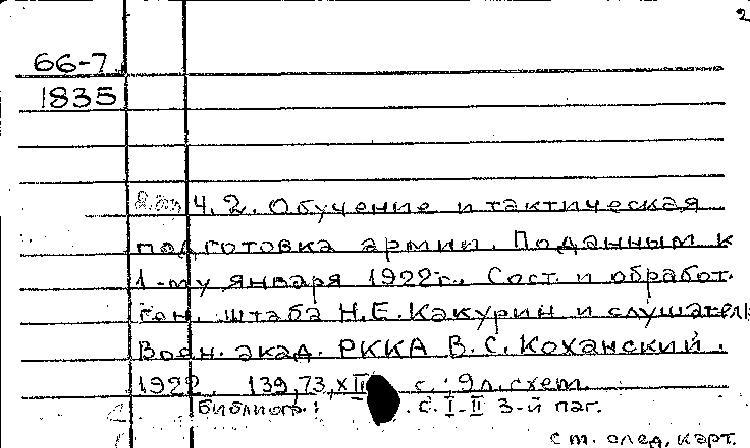 2
66-7
1835
Ч.2. Обучение и тактическая
подготовка армии. По данным к
1-му января 1922 г. Сост. и обработ.
ген. штаба Н.Е. Какурин и слушатель
Воен. акад. РККА В.С. Коханский.
1922. 139,73, с.; 9 л. схем.
Библиогр.: с. I-II 3-й паг.
см. след. карт.